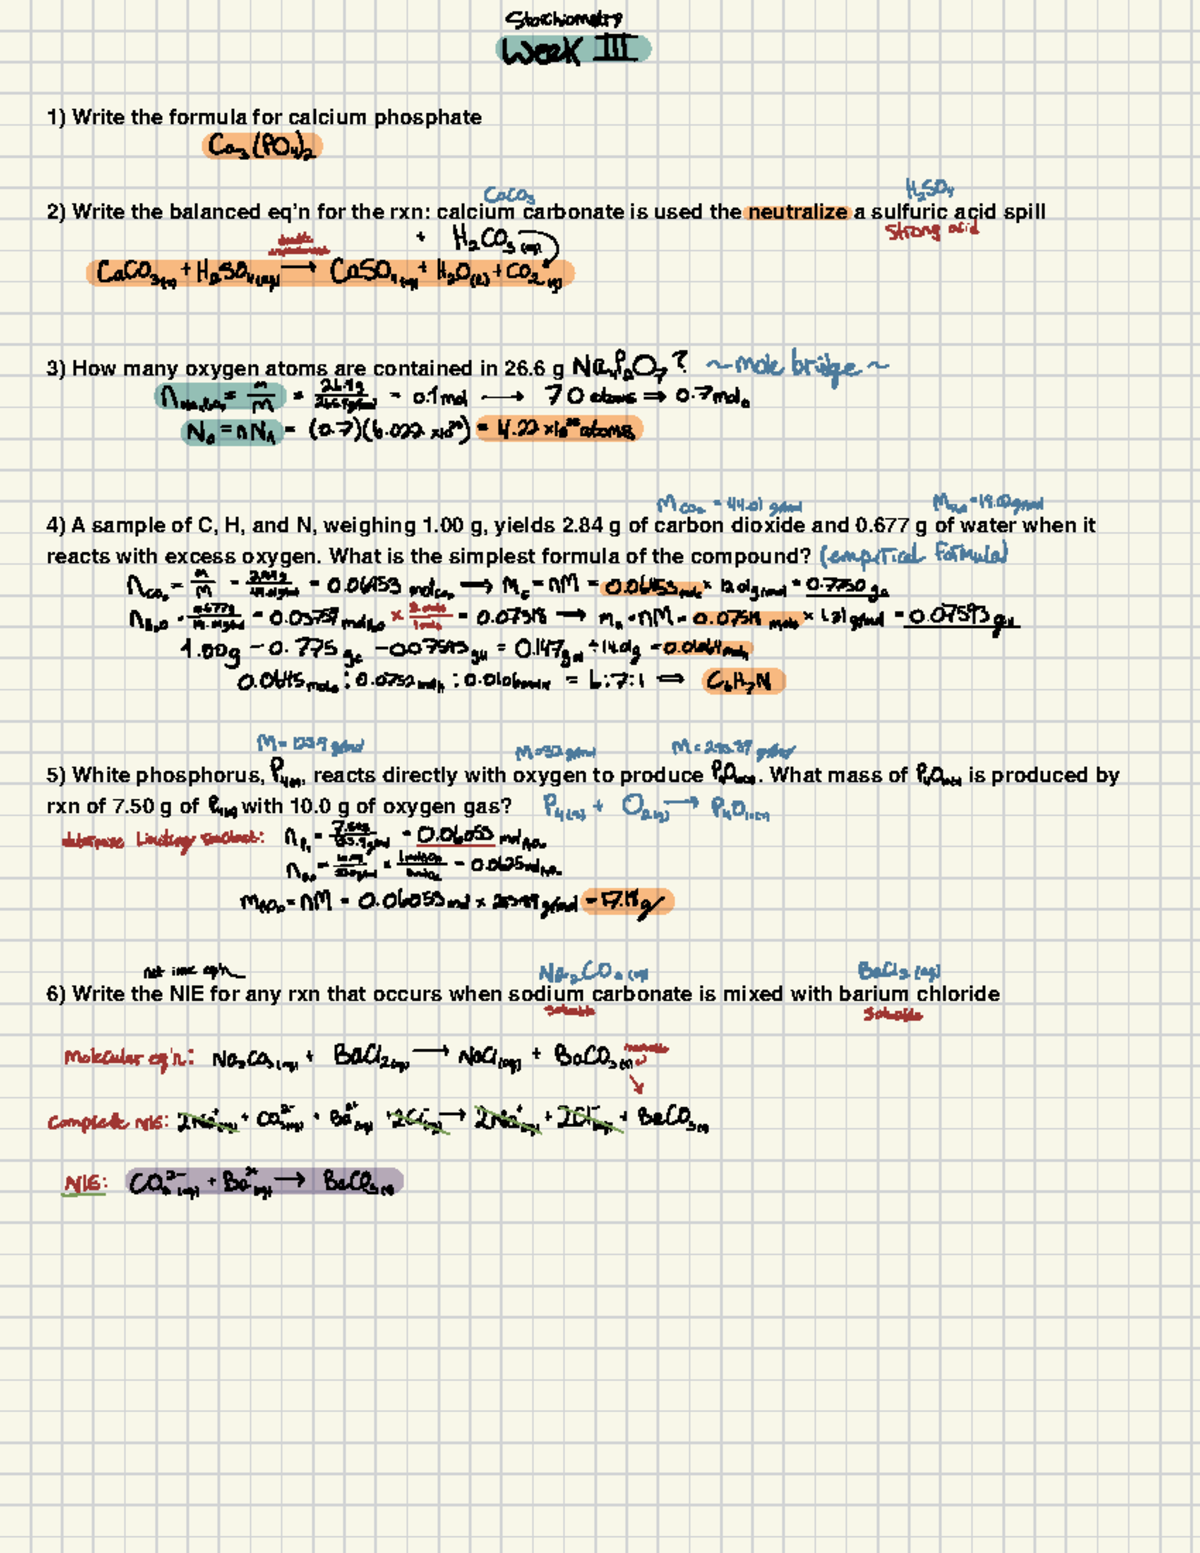 Stoichiometry
Week III
1) Write the formula for calcium phosphate
Ca₃(PO₄)₂
CaCO₃ H₂SO₄
2) Write the balanced eq'n for the rxn: calcium carbonate is used the neutralize a sulfuric acid spill
strong acid
+ H₂CO₃ (aq)
CaCO₃(s) + H₂SO₄(aq) → CaSO₄(aq) + H₂O(l) + CO₂(g)
3) How many oxygen atoms are contained in 26.6 g Na₄P₂O₇? ~mole bridge~
= m/M = = 0.1 mol → 7 O atoms ⇒ 0.7 mol
N₀ = nN_A = (0.7)(6.022 x10²³) = 4.22 x10²³ atoms
M CO₂ = 44.01 g/mol
4) A sample of C, H, and N, weighing 1.00 g, yields 2.84 g of carbon dioxide and 0.677 g of water when it
reacts with excess oxygen. What is the simplest formula of the compound? (empirical formula)
n CO₂ = m/M = = 0.06453 mol CO₂ → m C = nM = 0.06453 mol × 12.01 g/mol = 0.7750 g C
n H₂O = = 0.03759 mol H₂O × = 0.07518 → m H = nM = 0.07518 mol × 1.01 g/mol = 0.07593 g H
1.00g - 0.775 g C - 0.07593 g H = 0.147 g N ÷ 14.01g =
0.0645 mol C : 0.0752 mol H : = 6:7:1 ⇒ C₆H₇N
M = 123.9 g/mol M=32 g/mol
5) White phosphorus, P₄(s), reacts directly with oxygen to produce P₄O₁₀(s). What mass of P₄O₁₀(s) is produced by
rxn of 7.50 g of P₄(s) with 10.0 g of oxygen gas? P₄(s) + O₂(g) → P₄O₁₀(s)
determine Limiting reactant: n P₄ = = 0.06053 mol
= 0.0625 mol
m P₄O₁₀ = nM = 0.06053 mol × g/mol = 17.18 g
net ionic eq'n Na₂CO₃ (aq) BaCl₂ (aq)
6) Write the NIE for any rxn that occurs when sodium carbonate is mixed with barium chloride
soluble soluble
Molecular eq'n: Na₂CO₃(aq) + BaCl₂(aq) → NaCl(aq) + BaCO₃(s)
Complete NIE: 2Na⁺(aq) + CO₃²⁻(aq) + Ba²⁺(aq) + 2Cl⁻(aq) → 2Na⁺(aq) + 2Cl⁻(aq) + BaCO₃(s)
NIE: CO₃²⁻(aq) + Ba²⁺(aq) → BaCO₃(s)